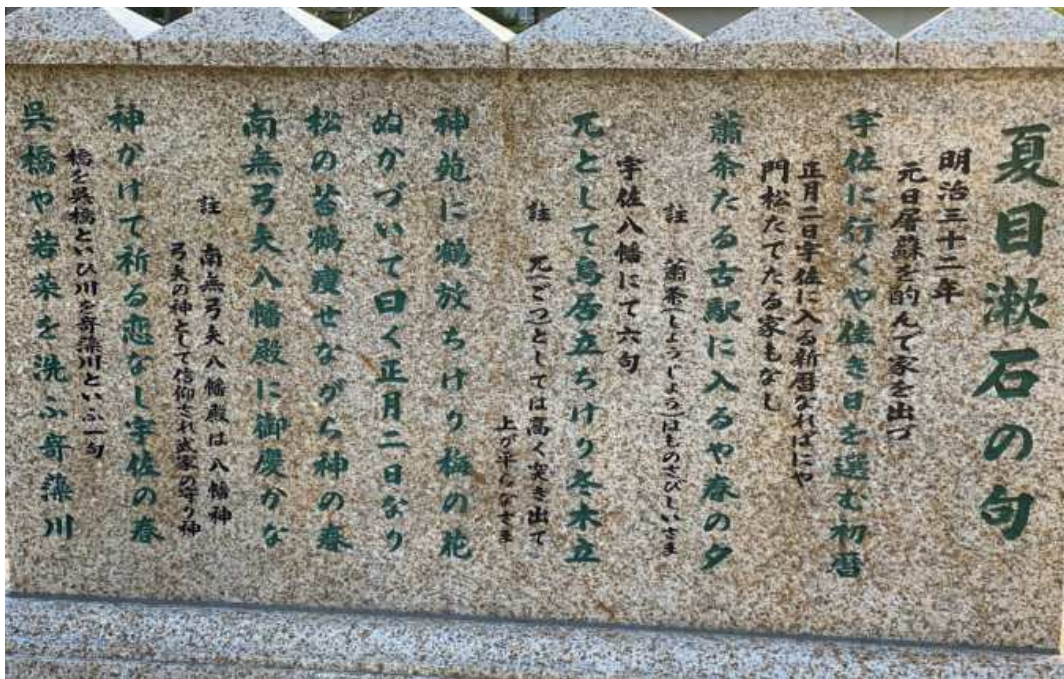 夏目漱石の句
明治三十二年
元日屠蘇を酌んで家を出づ
宇佐に行くや佳き日を選む初暦
正月二日宇佐に入る新暦なればにや
門松たてたる家もなし
蕭条たる古駅に入るや春の夕
註 蕭条(しょうじょう)はものさびしいさま
宇佐八幡にて六句
兀として鳥居立ちけり冬木立
註 兀(ごつ)としては高く突き出て
上が平らなさま
神苑に鶴放ちけり梅の花
ぬかづいて曰く正月二日なり
松の苔鶴痩せながら神の春
南無弓矢八幡殿に御慶かな
註 南無弓矢八幡殿は八幡神
弓矢の神として信仰され武家の守り神
神かけて祈る恋なし宇佐の春
橋を呉橋といひ川を寄藻川といふ一句
呉橋や若菜を洗ふ寄藻川